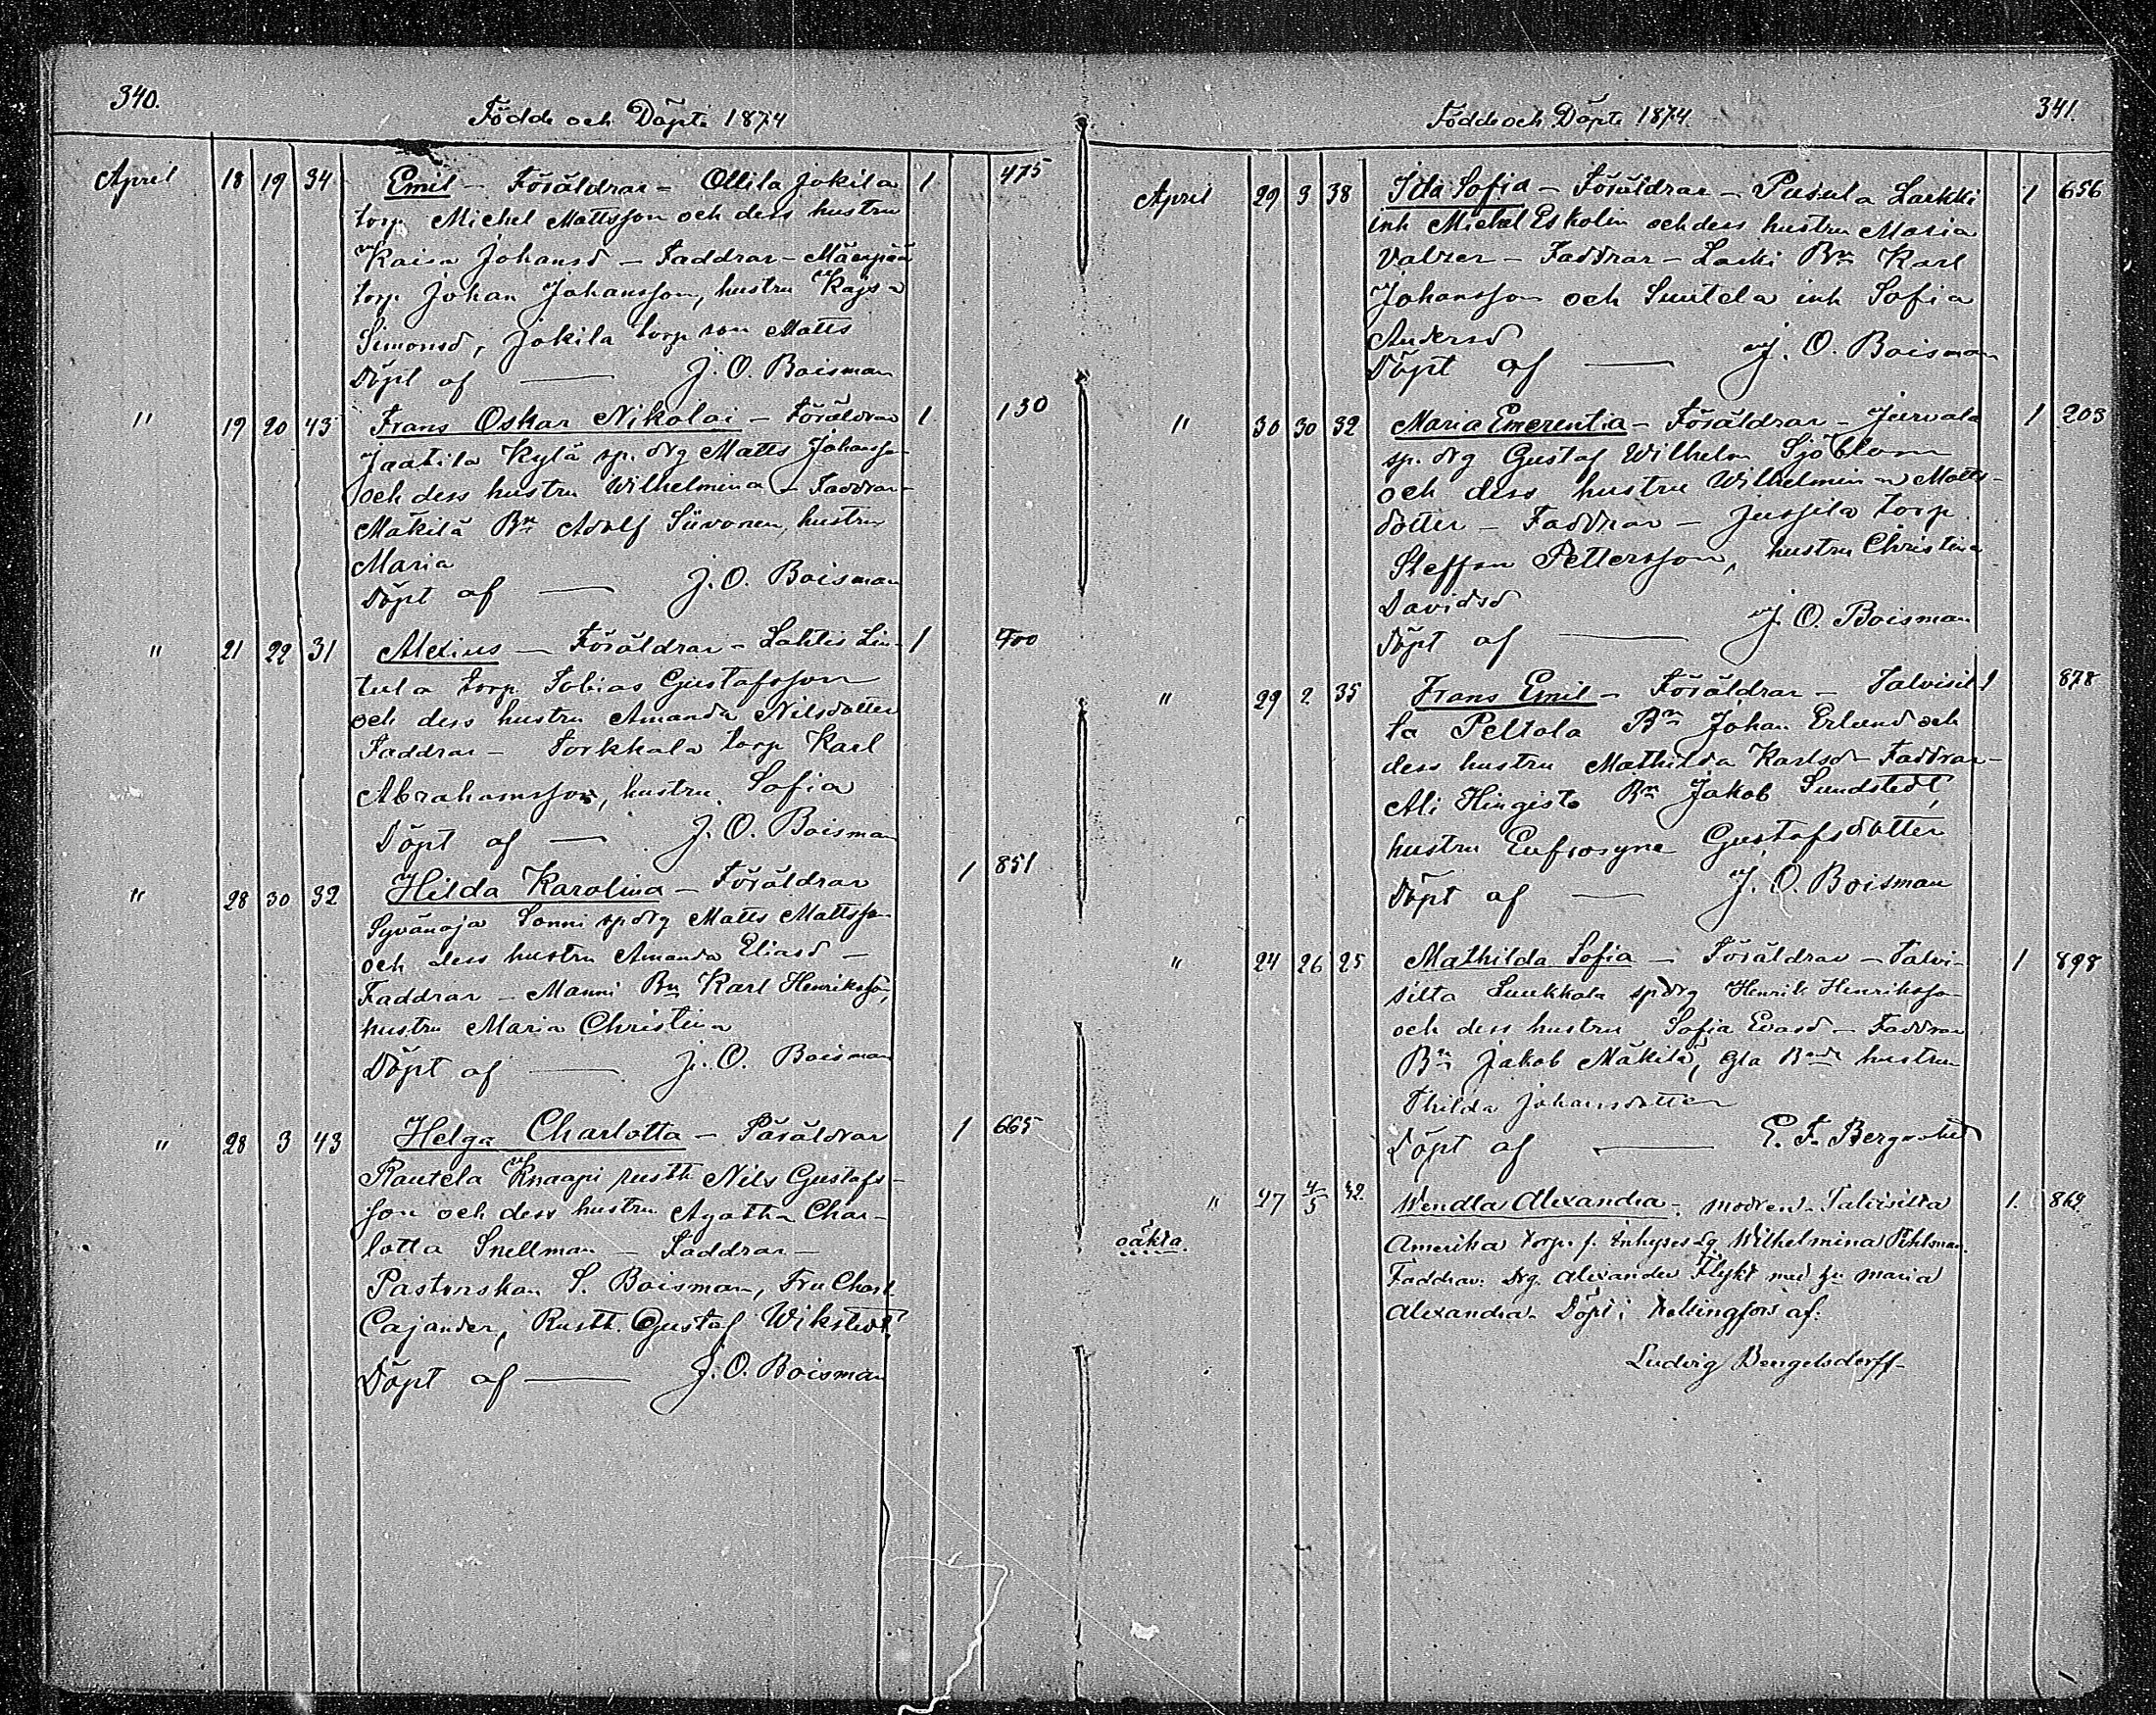 340.
Födde och Döpte 1874
April 18 19 34 Emil – Föräldrar – Ollila Jokila 1 475
torp Michel Mattsson och dess hustru
Kaisa Johansd – Faddrar – Mäenpää
torp Johan Johansson, hustru Kajsa
Simonsd, Jokila torp son Matts
Döpt af — J. O. Boisman
" 19 20 43 Frans Oskar Nikolai – Föräldrar 1 130
Jaatila Kylä sp. drg Matts Johansson
och dess hustru Wilhelmina – Faddrar –
Mäkilä Bn Adolf Siivonen, hustru
Maria
Döpt af — J. O. Boisman
" 21 22 31 Alexius – Föräldrar – Lahtis Lin- 1 400
tula torp Tobias Gustafsson
och dess hustru Amanda Nilsdotter
Faddrar – Torkkala torp Karl
Abrahamsson, hustru Sofia
Döpt af — J. O. Boisman
" 28 30 32 Hilda Karolina – Föräldrar 1 851
Syvänoja Sonni sp drg Matts Mattsson
och dess hustru Amanda Eliasd –
Faddrar – Manni Bn Karl Henriksson,
hustru Maria Christina
Döpt af — J. O. Boisman
" 28 3 43 Helga Charlotta – Föräldrar 1 665
Rautela Knaapi rustt Nils Gustafs-
son och dess hustru Agatha Char-
lotta Snellman – Faddrar –
Pastorskan S. Boisman, Fru Charl.
Cajander, Rustt. Gustaf Wikstedt
Döpt af — J. O. Boisman
Födde och Döpte 1874.
341.
April 29 3 38 Ida Sofia – Föräldrar – Pusula Larkki 1 656
inh Michel Eskolin och dess hustru Maria
Valzer – Faddrar – Larki Bn Karl
Johansson och Suutela inh Sofia
Andersd
Döpt af — J. O. Boisman
" 30 30 32 Maria Emerentia – Föräldrar – Jurvala 1 203
sp. drg Gustaf Wilhelm Sjöblom
och dess hustru Wilhelmina Matts-
dotter – Faddrar – Jussila torp
Steffan Pettersson, hustru Christina
Davidsd
Döpt af — J. O. Boisman
" 29 2 35 Frans Emil – Föräldrar – Talvisil- 1 878
ta Peltola Bn Johan Erlund och
dess hustru Mathilda Karlsd – Faddrar –
Ali Hingisto Bn Jakob Sundstedt,
hustru Eufrosyne Gustafsdotter
Döpt af — J. O. Boisman
" 24 26 25 Mathilda Sofia – Föräldrar – Talvi- 1 898
silta Luukkala sp drg Henrik Henriksson
och dess hustru Sofia Evasd – Faddrar
Bn Jakob Mäkilä, gla Bnde hustru
Thilda Johansdotter
Döpt af — E. F. Bergroth
" 27 4/5 42. Wendla Alexandra – modren – Talvisilta 1. 862.
oäkta.
Amerika torp. f. Inhyses Wilhelmina Pihlman.
Faddrar: Drg. Alexander Flykt med hu Maria
Alexandra. Döpt i Helsingfors af:
Ludvig Bengelsdorff